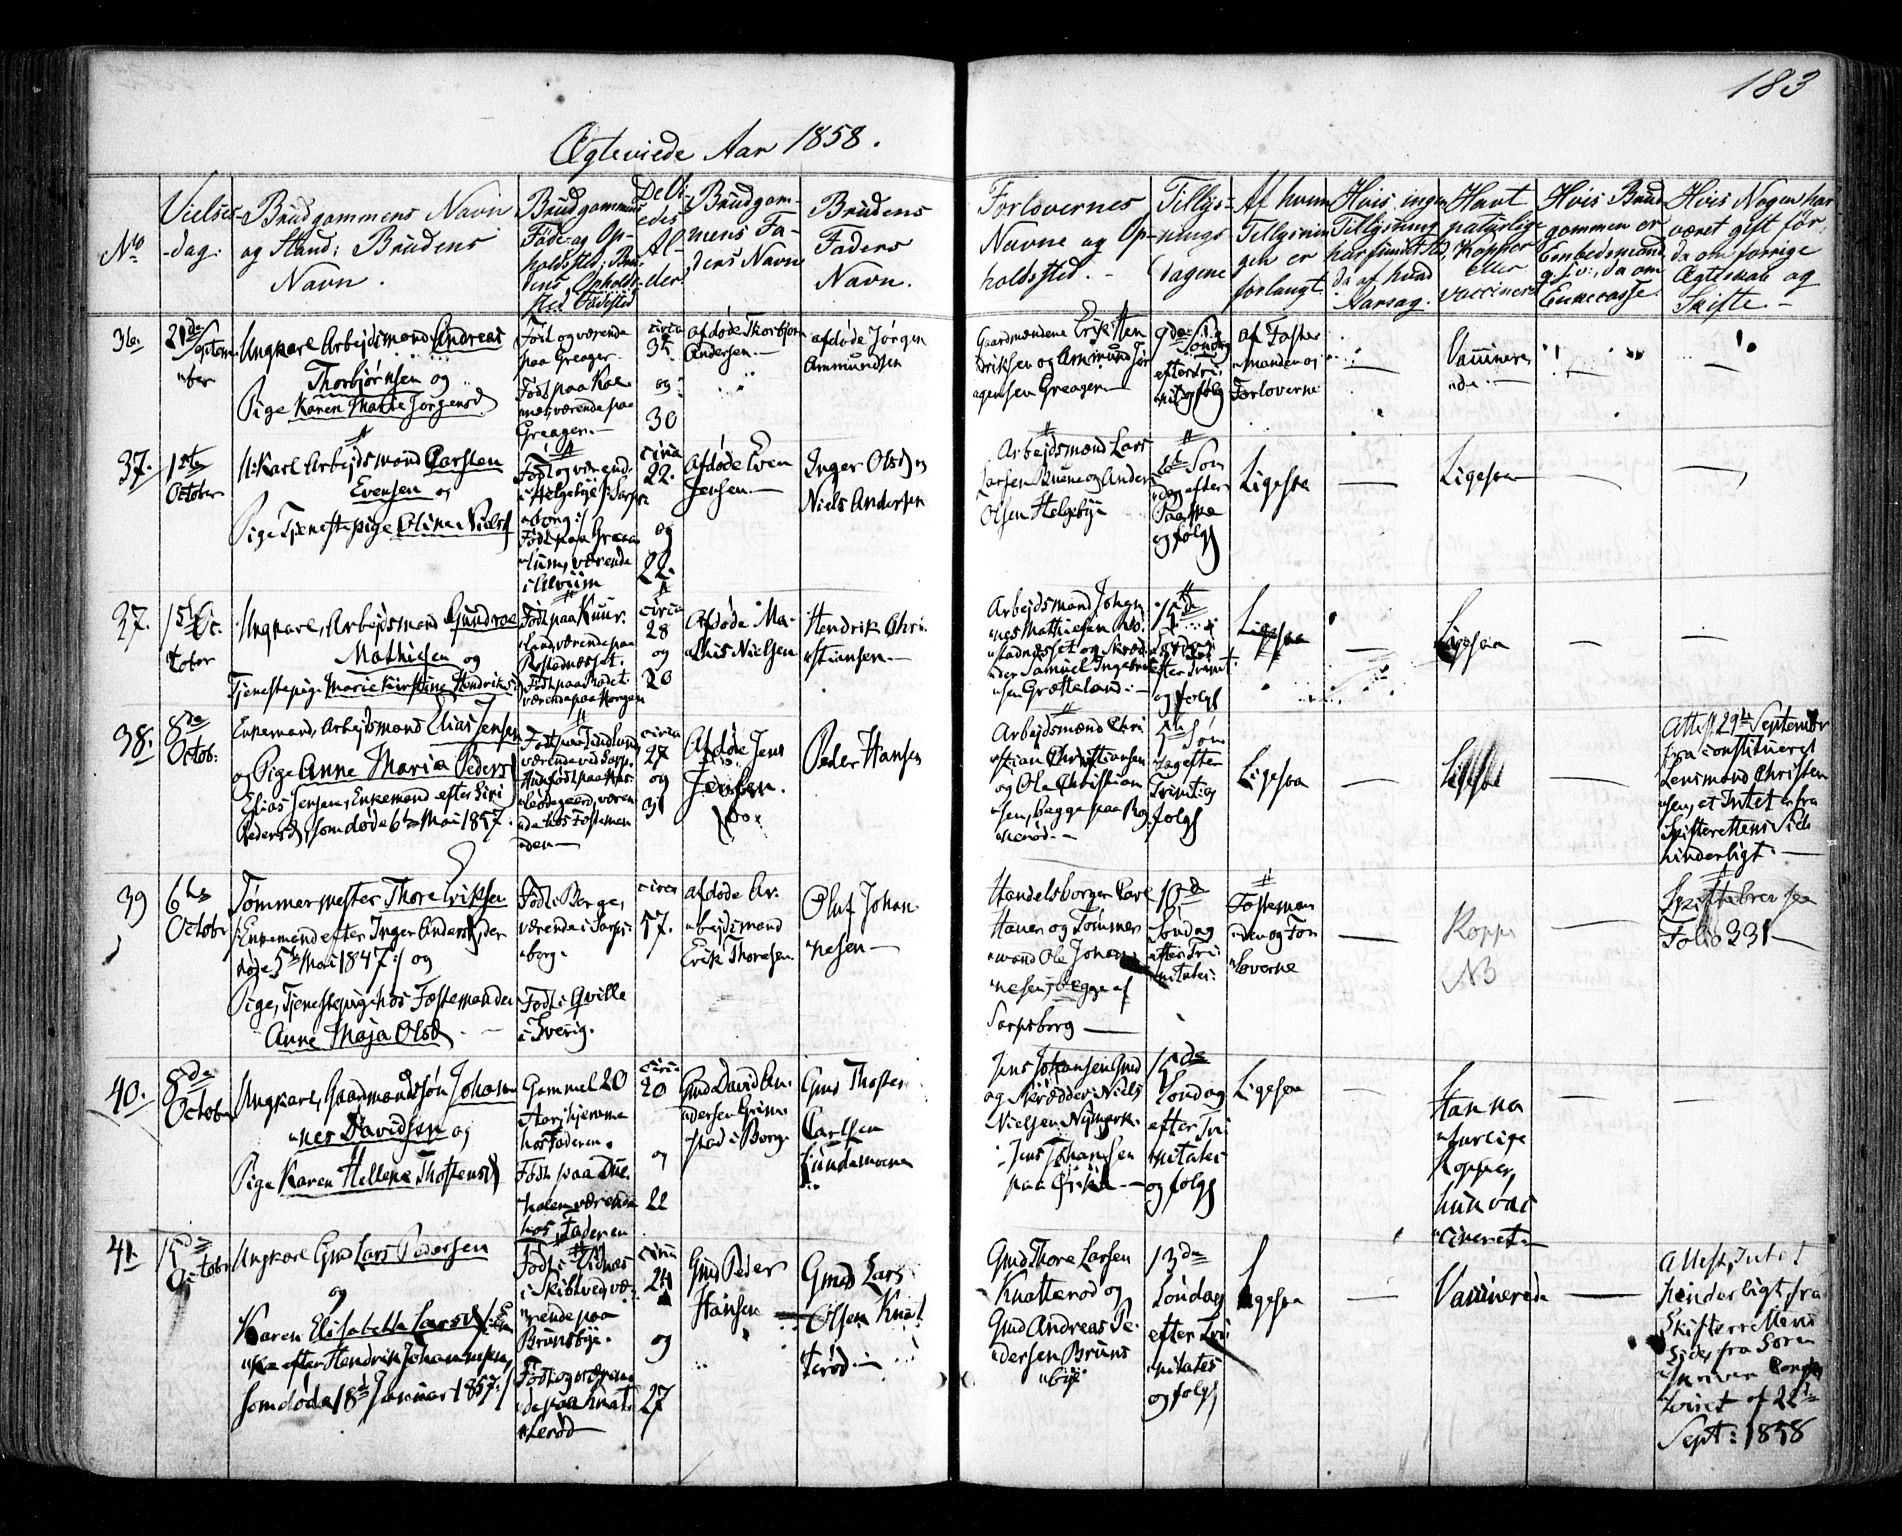 183
Ægteviede Aar 1858.
No
Vielses
-dag:
Brudgommens Navn
og Stand; Brudens
Navn.
Brudgommens
Føde- og Op-
holdssted; Bru-
dens Opholds-
sted, Fødested
De Vi-
edes
Al-
der
Brudgom-
mens Fa-
ders Navn
Brudens
Faders
Navn.
Forlovernes
Navne og Op-
holdssted.
Tillys-
nings
dagene
Af hvem
Tillysnin
gen er
forlangt
Hvis ingen
Tillysning
har fundet Sted
da af hvad
Aarsag.
Havt
naturlige
Kopper
eller
vaccineret
Hvis Brud
gommen er
Embedsmand
Enkecasse
Hvis Nogen har
været gift før,
da om forrige
Ægteskab og
Skifte.-
36.
21de
Septem
ber
Ungkarl Arbejdsmand Andreas
Thorbjørnsen og
Pige Karen Marie Jørgensd
Født og værende
paa Greager
Født paa
værende paa
Greager.
circa
og
30
afdøde Thorbjørn
Andersen.
afdøde Jørgen
Ammundsen
Gaardmændene Erik Hen
driksen og Ammund Jør
gensen Greager
efter Tri
nit. og følg
af Fæste
manden og
Forloverne
Vaccinere
de.
37.
1ste
October
U:Karl Arbejdsmand Carsten
Evensen og
Pige Tjenestepige Oline Nielsd
Født og værend.
i Helgebye i Sarps
borg
Født paa Graa
lum, værende
i Alvim
circa
22.
og
22.
Afdøde Even
Jensen.
Inger Olsd og
Niels Andersen
Arbejdsmænd Lars
Larsen Bruene og Anders
Olsen Helgebye
Søn
dag efter
Paaske
og følg
Ligesaa
Ligesaa
37.
15 Oc.
tober
Ungkarl, Arbejdsmand Gundroe
Mathisen og
Tjenestepige Marie Kirstine Hendriksd
Født paa
land, værende paa
Rostadnæsset.
Født paa
værende paa Borgen
circa
28
og
20
Afdøde Ma-
this Nielsen
Hendrik Chri
stiansen.
Arbejdsmand Johan
nes Mathiesen Ro
stadnesset og Skræd
der Samuel Ingebret
sen Grotteland
15de
Søndag
efter Trinit.
og følg
Ligesaa
Ligesaa
38.
8de
Octob:
Enkemand, Arbejdsmand Elias Jensen
og Pige Anne Maria Pedersd
Elias Jensen, Enkemand efter Siri
Pedersd, som døde 6te Mai 1857.
værende ved Sarp.
Hun født paa
værende hos Fæstemanden
circa
27
og
31
Afdøde Jens
Jensen.
Peder Hansen
Arbejdsmænd Chri
stian Christiansen
og Ole Christian
sen, begge paa
Søn
dag efter
Trinit. og
følg
Ligesaa
Ligesaa
Attest 29de September
fra constitueret
Lensmand Christen
sen, at Intet er fra
Skifterettens Side
hinderligt.
39
6te
October
Tømmermester Thore Eriksen
/:Enkemand efter Inger Andersd, der
døde 5te Mai 1847:/ og
Pige, Tjenestepige hos Fæstemanden
Anne Maja Olsd
Født i Berge,
værende i Sarps
borg.
Født i Qville
i Sverig.
circa
57.
afdøde Ar.
bejdsmand
Erik Thoresen.
Oluf Johan
nesen
Handelsborger Carl
Hauer og Tømmer
mand Ole Johan
nesen, begge af
Sarpsborg
Søndag
efter Tri
nitatis
Fæsteman
den og For
loverne
Kopper
NB
Skiftebrev see
Folio 231
40.
8de
October
Ungkarl, Gaardmandssøn Johan
nes Davidsen og
Pige Karen Hellene Thostensd
Gammel 20
Aar, hjemme
hos Faderen.
Født paa Due
holen, værende
hos Faderen
circa
20
og
22
Gmd David An.
dersen Grim
stad i Borge
Gmd Thosten
Carlsen
Lundemoene
Jens Johansen Gmd
og Skrædder Niels
Nielsen Nymark.
Jens Johansen
paa
Søndag
efter Tri
nitatis
og følg
Ligesaa
Han na
turlige
Kopper,
hun vac
cineret
41.
October
Ungkarl Gmd Lars Pedersen
og
Karen Elisabeth Larsd /:En
ke efter Hendrik Johannesen,
som døde 18de Januar 1857:/
Født i Vidnæs
i Skibtved, væ
rende paa
Brunsbye.
Født og værend
de paa Knat
terød
circa
24
og
27
Gmd Peder
Hansen
Gmd Lars
Olsen Knat
terød
Gmd Thore Larsen
Knatterød og
Gmd Andreas Pe
dersen Bruns
bye
13de
Søndag
efter Tri
nitatis
og følg
Ligesaa
Vaccinerede
Attest, Intet
hinderligt fra
Skifterettens
Side, fra Soren
skriver
toiret af 22de
Sept: 1858